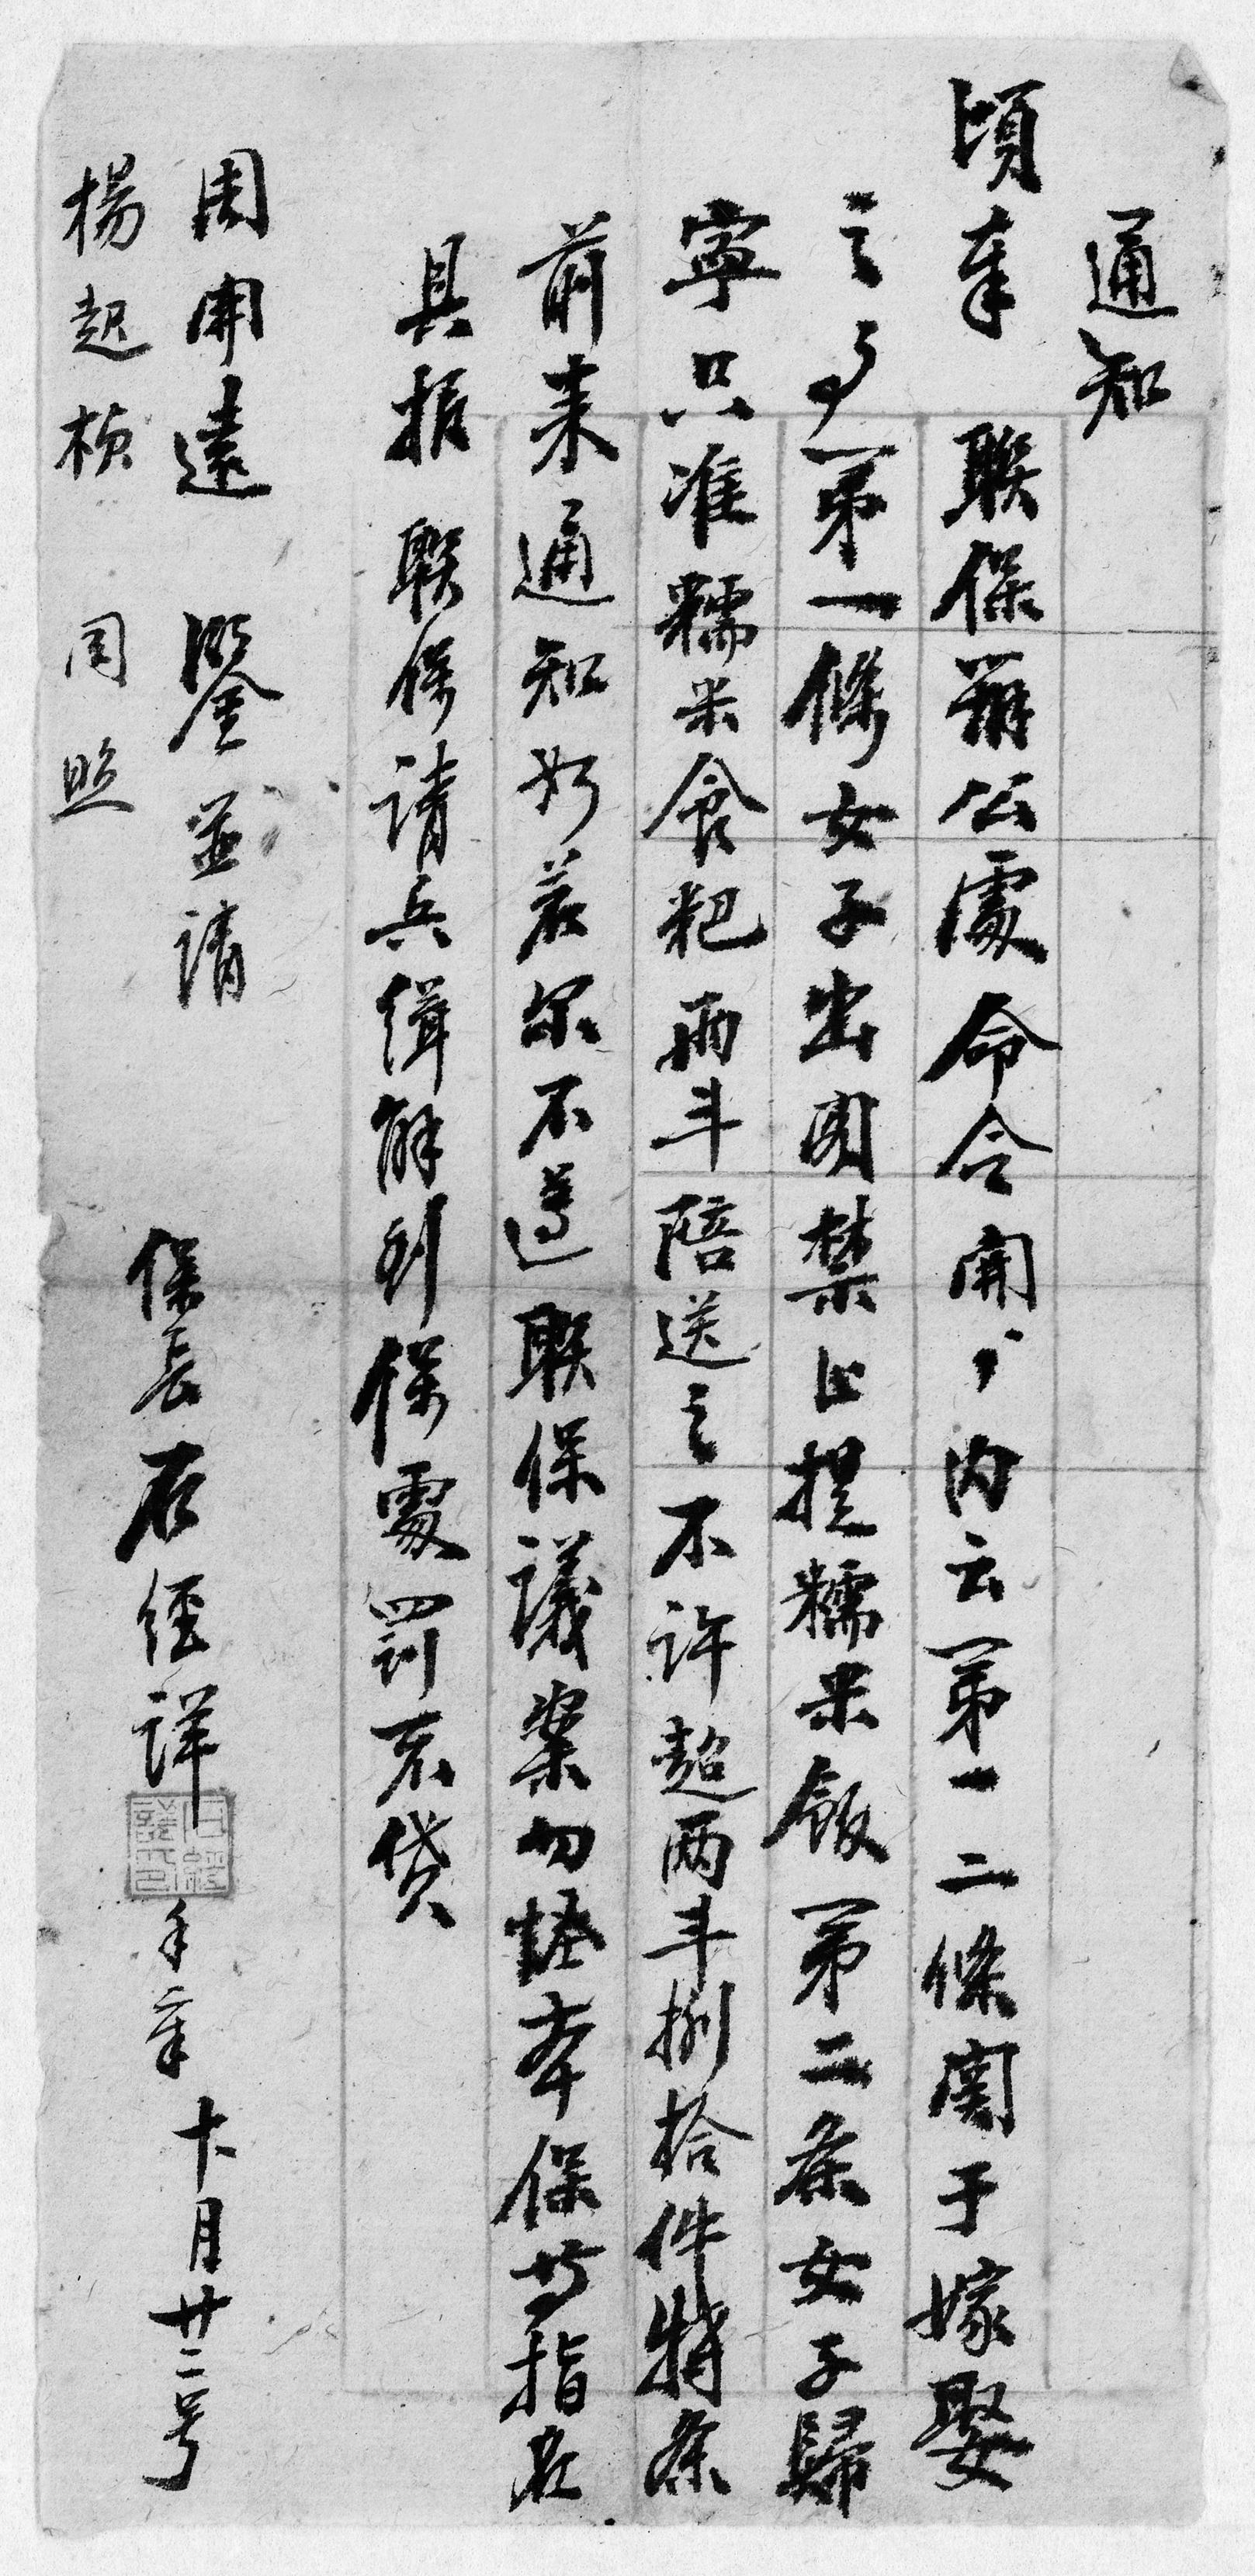 通知
頃奉 聯保辦公處命令開，內云第一二條関于嫁娶
之事第一條女子出閣禁止提糯米飯第二条女子歸
寧只准糯米食粑両斗陪送之不許超両斗捌拾件特条
前来通知如若保不遵聯保議案勿怪本保芳指名
具报 聯保請兵緝解到保處罰不貸
周開遠 鑒並請
楊起楨 同照
保長石經詳
十月廿二号